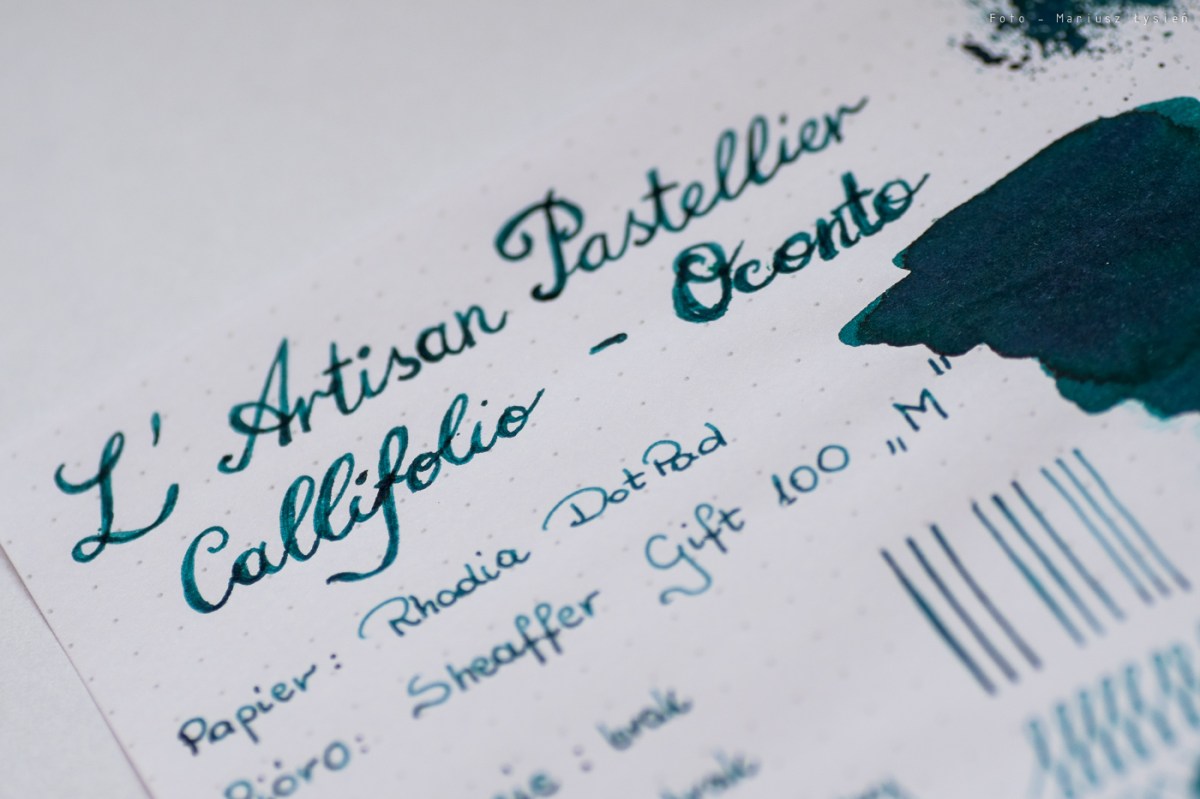 Foto - Mariusz Łysień
L' Artisan Pastellier
Callifolio - Oconto
Papier: Rhodia DotPad
Pióro: Sheaffer Gift 100 „M"
: brak
brak